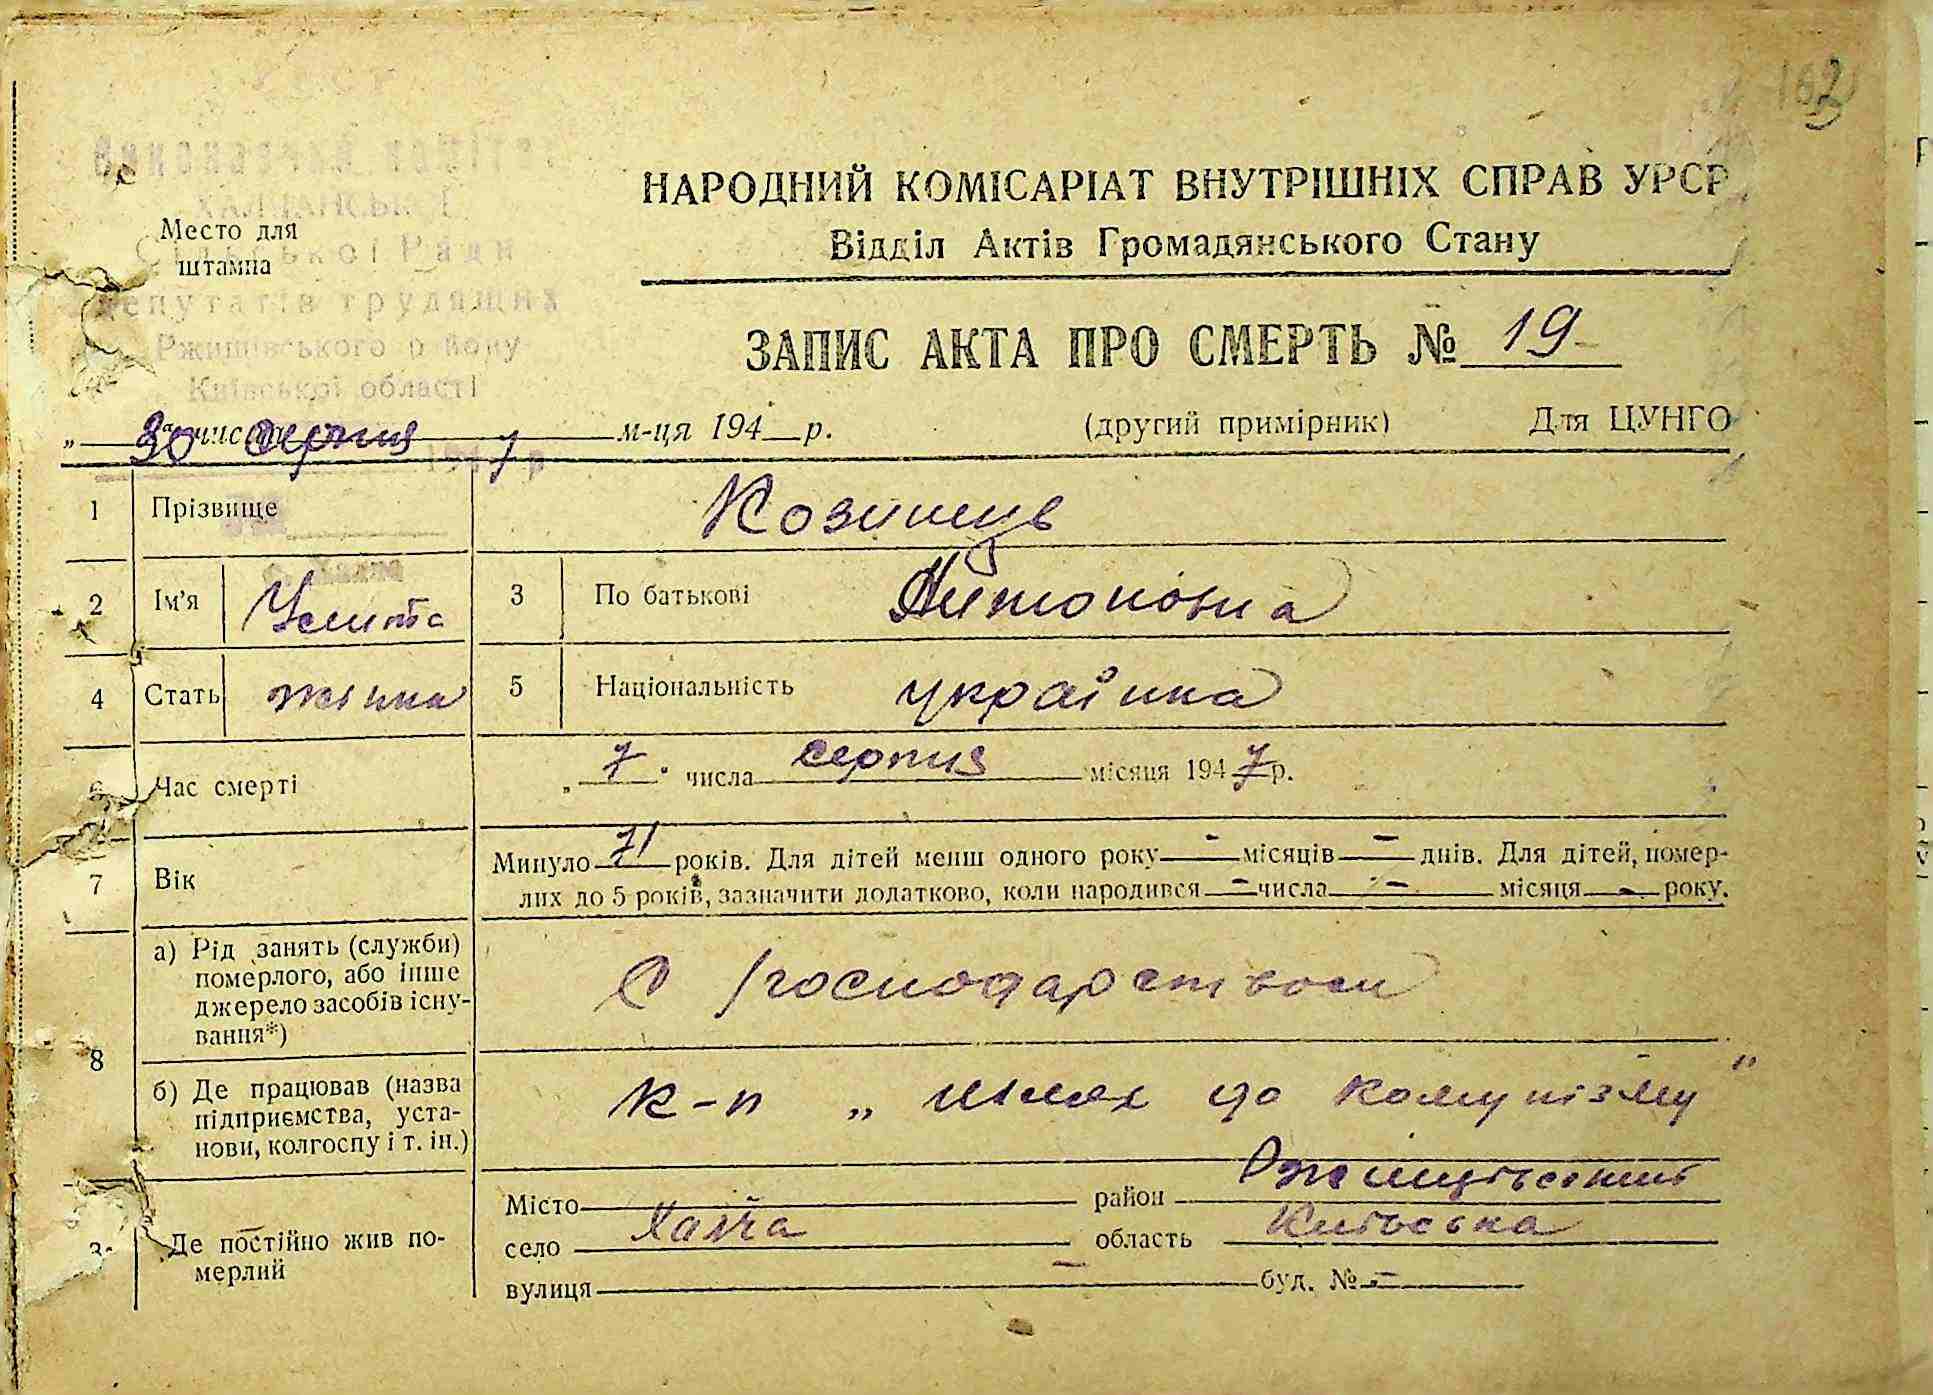 162
УРСР
Виконавчий комітет
ХАЛЧАНСЬКОЇ
Сільської Ради
депутатів трудящих
Ржищівського району
Київської області
Место для
штампа
НАРОДНИЙ КОМІСАРІАТ ВНУТРІШНІХ СПРАВ УРСР
Відділ Актів Громадянського Стану
ЗАПИС АКТА ПРО СМЕРТЬ № 19
„ 30 " числа серпня 7 м-ця 194 р. (другий примірник) Для ЦУНГО
1 Прізвище Козинець
2 Ім'я Улита 3 По батькові Антонівна
4 Стать жінка 5 Національність українка
6 Час смерті „ 7 " числа серпня місяця 1947 р.
7 Вік Минуло 71 років. Для дітей менш одного року — місяців — днів. Для дітей, помер-
лих до 5 років, зазначити додатково, коли народився — числа — місяця — року.
8 а) Рід занять (служби)
померлого, або інше
джерело засобів існу-
вання*)
С /господарством
б) Де працював (назва
підприємства, уста-
нови, колгоспу і т. ін.)
к-п „шлях до комунізму"
Де постійно жив по-
мерлий
Місто район Ржищівський
село Халча область Київська
вулиця — буд. № —